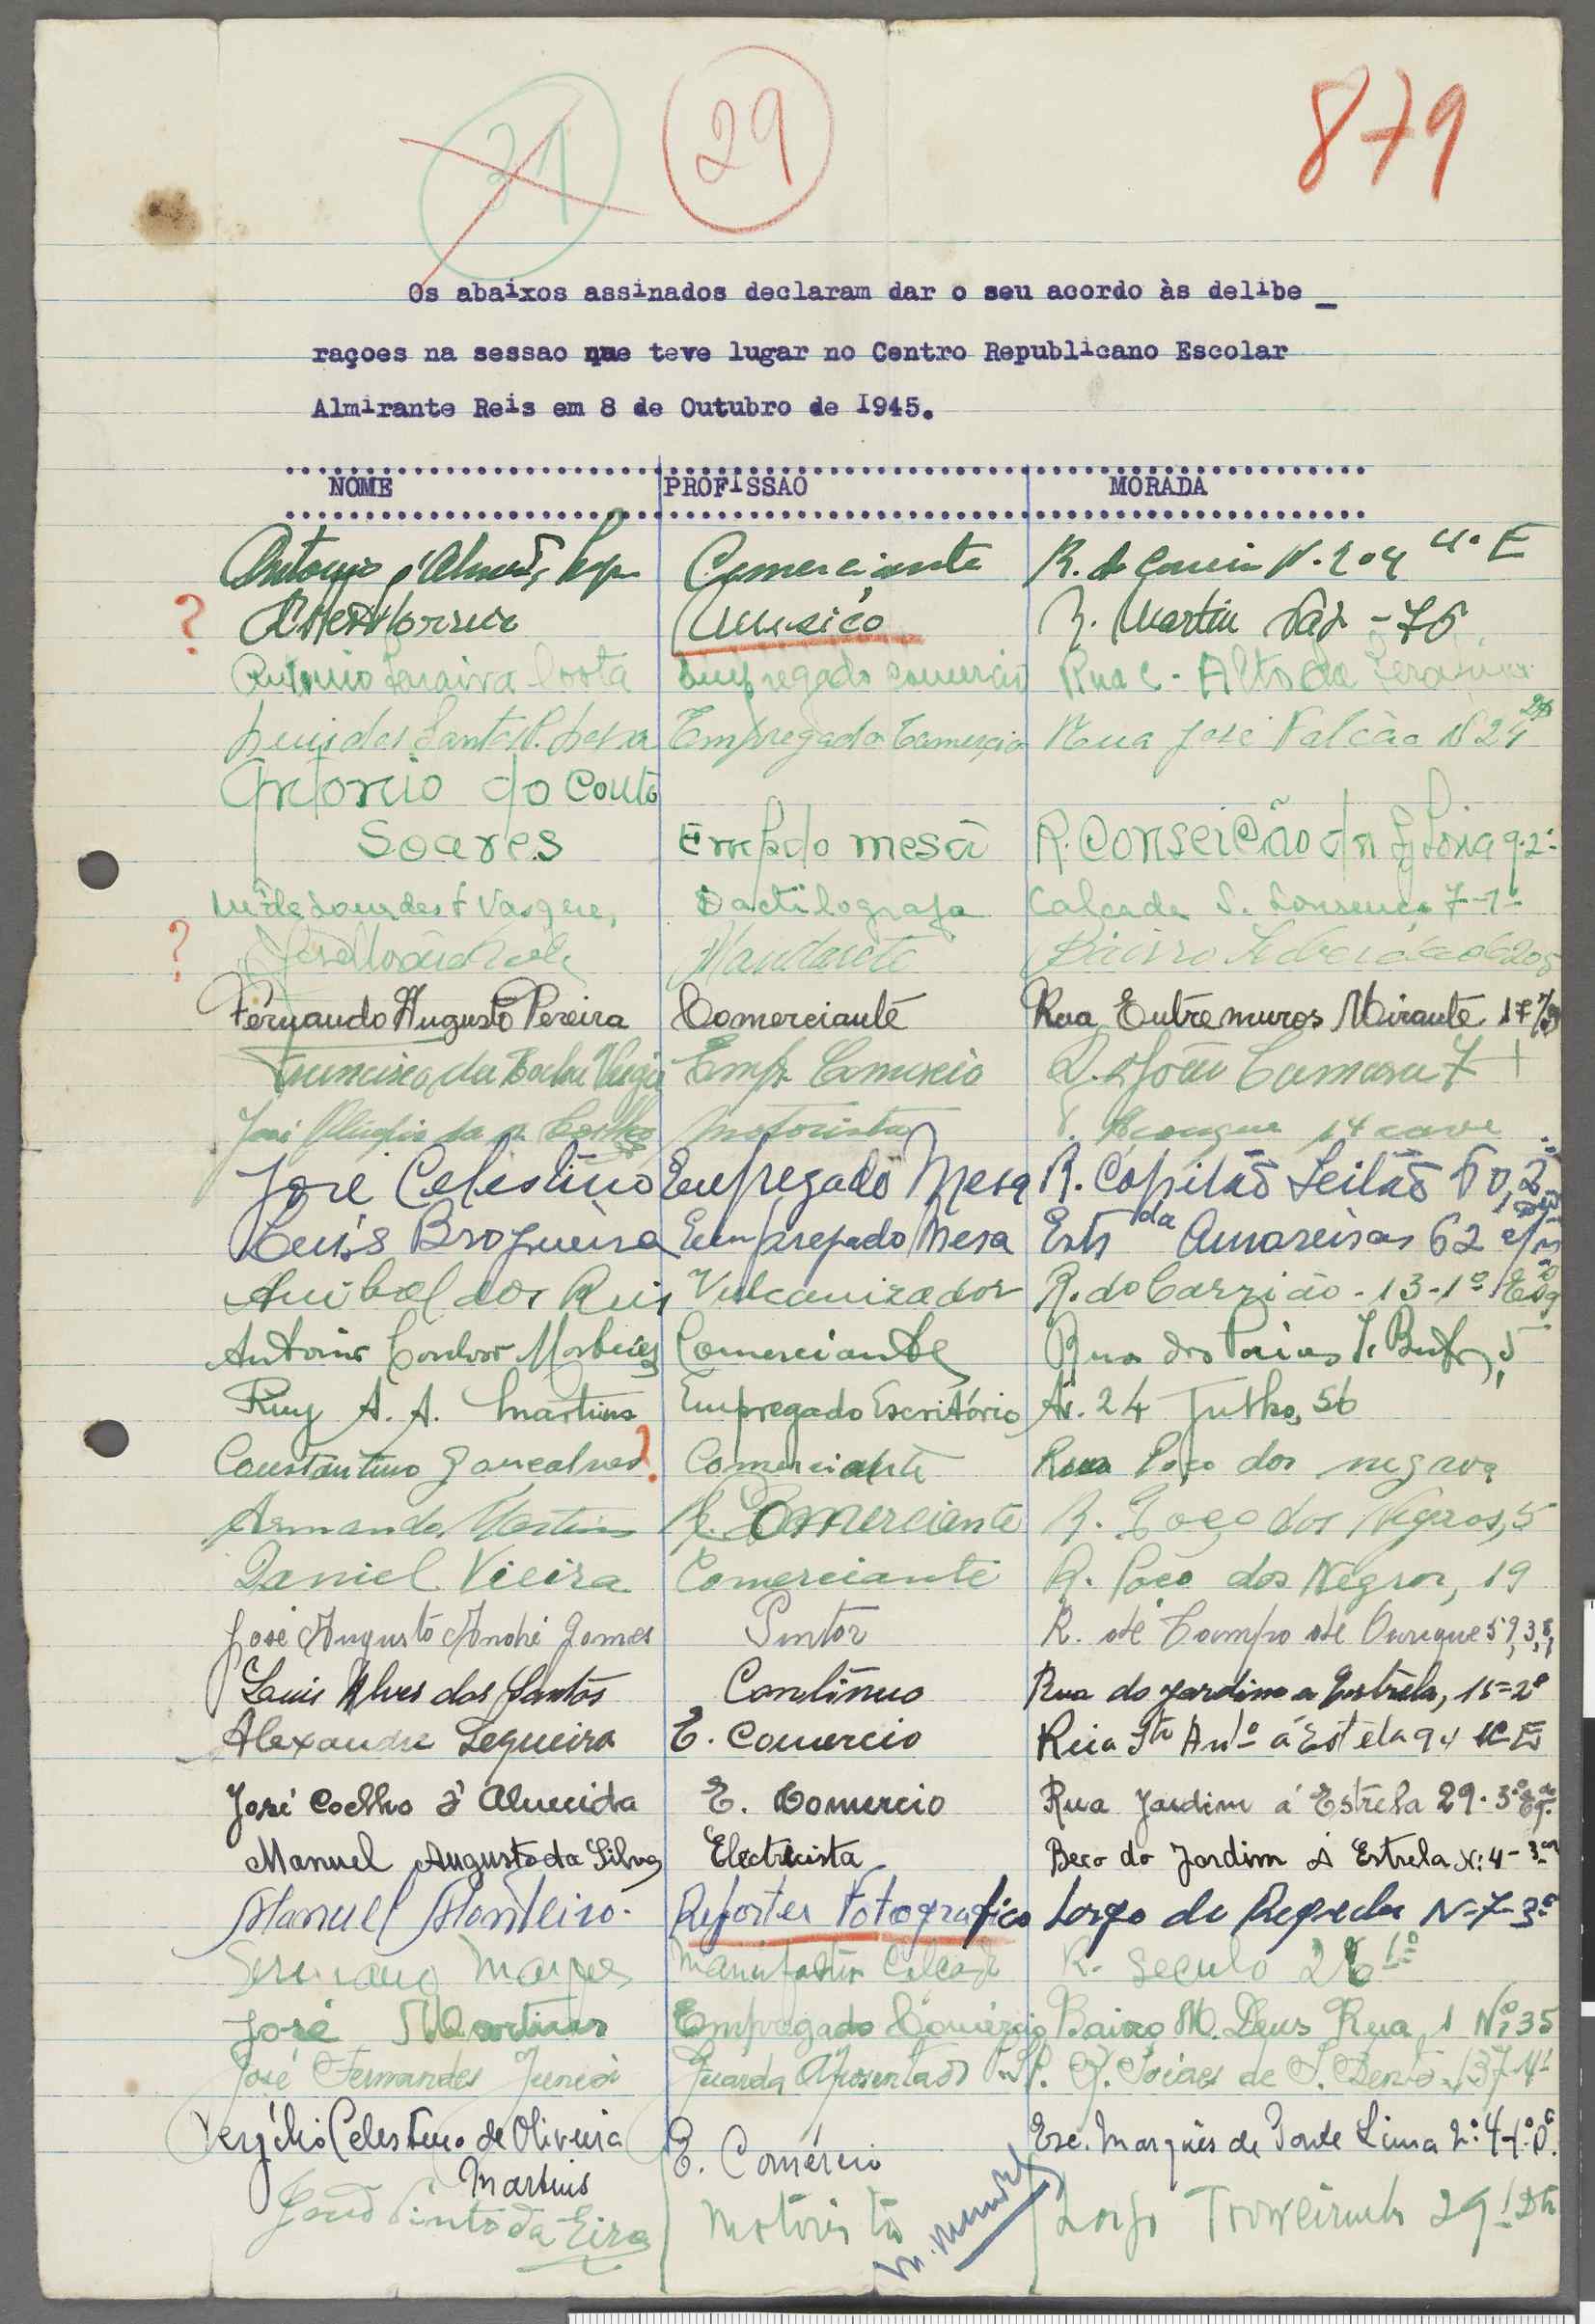 31
29
879
Os abaixos assinados declaram dar o seu acordo às delibe_
raçoes na sessao que teve lugar no Centro Republicano Escolar
Almirante Reis em 8 de Outubro de 1945.
NOME PROFISSAO MORADA
Antonio Comerciante R. N. 204 4º E
? Musico R. Martim Vaz - 76
Antonio Saraiva Costa Empregado comercio Rua C - Alto da
Luis dos Santos P. Empregado Comercio Rua José Falcão N 24
Antonio do Couto
Soares Empdo mesa R. Conseicão da Gloria 9-2º
Mª de Lourdes F. Vasques Dactilografa Calçada S. Lourenço 7-1º
? Mandarete Bairro Liberdade 205
Fernando Augusto Pereira Comerciante Rua Entremuros Mirante 17
Francisco da Emp. Comercio R. D. João Camara 7
José da Coelho motorista Açougue 14 cave
José Celestino Empregado Mesa R. Capitão Leitão 50,2
Luis Brogueira Empregado Mesa Estr da Amoreiras 62
Anibal dos Reis Vulcanizador R. do Carrião - 13-1º Esq
Antonio Martins Comerciante Rua dos Poiais S. Bento, 5
Ruy A. A. Martins Empregado Escritório Av. 24 Julho, 56
Constantino Goncalves ? Comerciante Rua Poço dos negros
Armando Martins Comerciante R. Poço dos Negros, 5
Daniel Vieira Comerciante R. Poço dos Negros, 19
José Augusto André Gomes Pintor R. de Campo de Ourique 59, 3,
Luis Alves dos Santos Continuo Rua do Jardim a Estrêla, 15=2º
Alexandre Sequeira E. Comercio Rua Stº Antº á Estela 94
José Coelho d'Almeida E. Comercio Rua Jardim á Estrêla 29-3º Eq.
Manuel Augusto da Silva Electricista Beco do Jardim á Estrela N: 4-3
Manuel Monteiro. Reporter Fotografico Largo do Regedor N-7-3º
Germano Marques R. Seculo 26 1º
José Martins Empregado Comércio Bairro M. Deus Rua 1 Nº 35
José Fernandes Junior Guarda Aposentado R. Poiaes de S. Bento, 137-4º
Virgilio Celestino de Oliveira E. Comércio Esc. Marquês de Ponte Lima
Martins
Pinto da Eira Motorista Largo 29 1º Dto